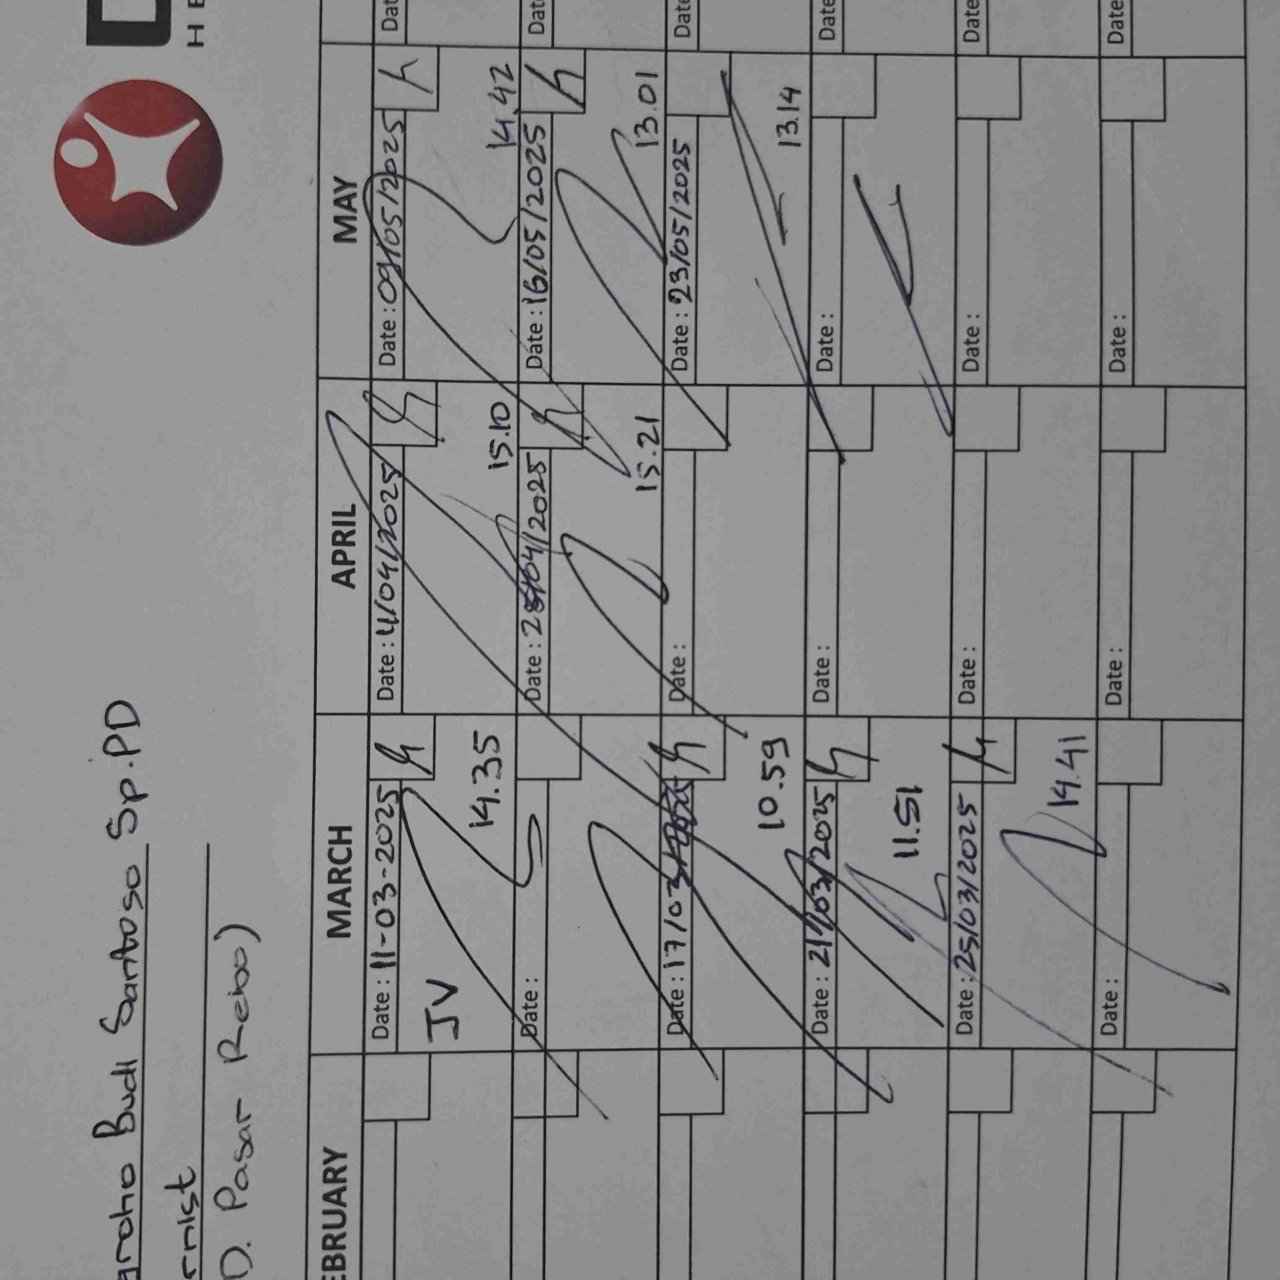 Budi Santoso Sp.PD
D. Pasar Rebo)
MARCH
APRIL
MAY
Date : 11-03-2025
JV
14.35
Date : 4/04/2025
15.10
Date : 09/05/2025
14.42
Date :
Date : 16/05/2025
15.21
13.01
Date : 17/03/2025
10.59
Date :
Date : 23/05/2025
13.14
Date : 21/03/2025
11.51
Date :
Date :
Date : 25/03/2025
14.41
Date :
Date :
Date :
Date :
Date :